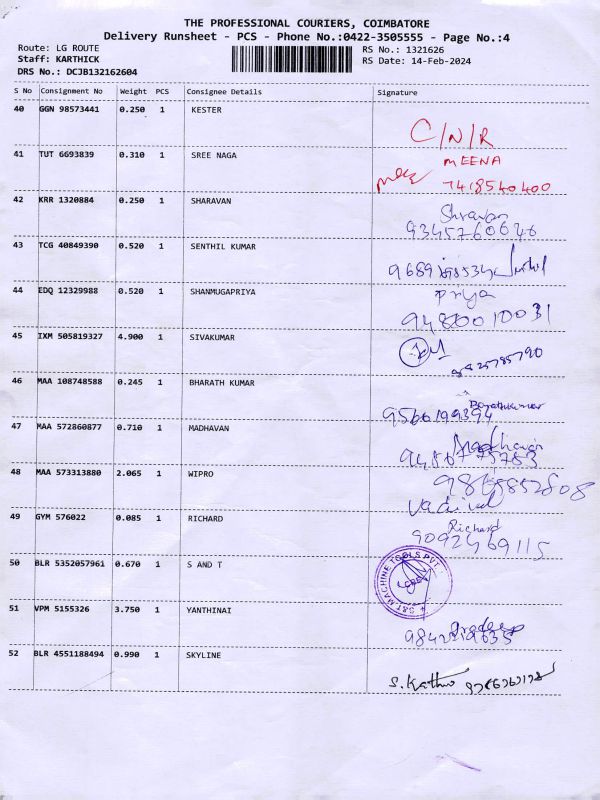 THE PROFESSIONAL COURIERS, COIMBATORE
Delivery Runsheet - PCS - Phone No.:0422-3505555 - Page No.:4
Route: LG ROUTE
Staff: KARTHICK
DRS No.: DCJB132162604
RS No.: 1321626
RS Date: 14-Feb-2024
S No Consignment No Weight PCS Consignee Details Signature
40 GGN 98573441 0.250 1 KESTER
C/N/R
41 TUT 6693839 0.310 1 SREE NAGA
MEENA
7418540400
42 KRR 1320884 0.250 1 SHARAVAN
Shravan
9345760646
43 TCG 40849390 0.520 1 SENTHIL KUMAR
44 EDQ 12329988 0.520 1 SHANMUGAPRIYA
Priya
9480010031
45 IXM 505819327 4.900 1 SIVAKUMAR
46 MAA 108748588 0.245 1 BHARATH KUMAR
Barathkumar
9566199394
47 MAA 572860877 0.710 1 MADHAVAN
Madhavan
48 MAA 573313880 2.065 1 WIPRO
Vadivel
49 GYM 576022 0.085 1 RICHARD
Richard
9092469115
50 BLR 5352057961 0.670 1 S AND T
S&T MACHINE TOOLS PVT
51 VPM 5155326 3.750 1 YANTHINAI
Pradeep
52 BLR 4551188494 0.990 1 SKYLINE